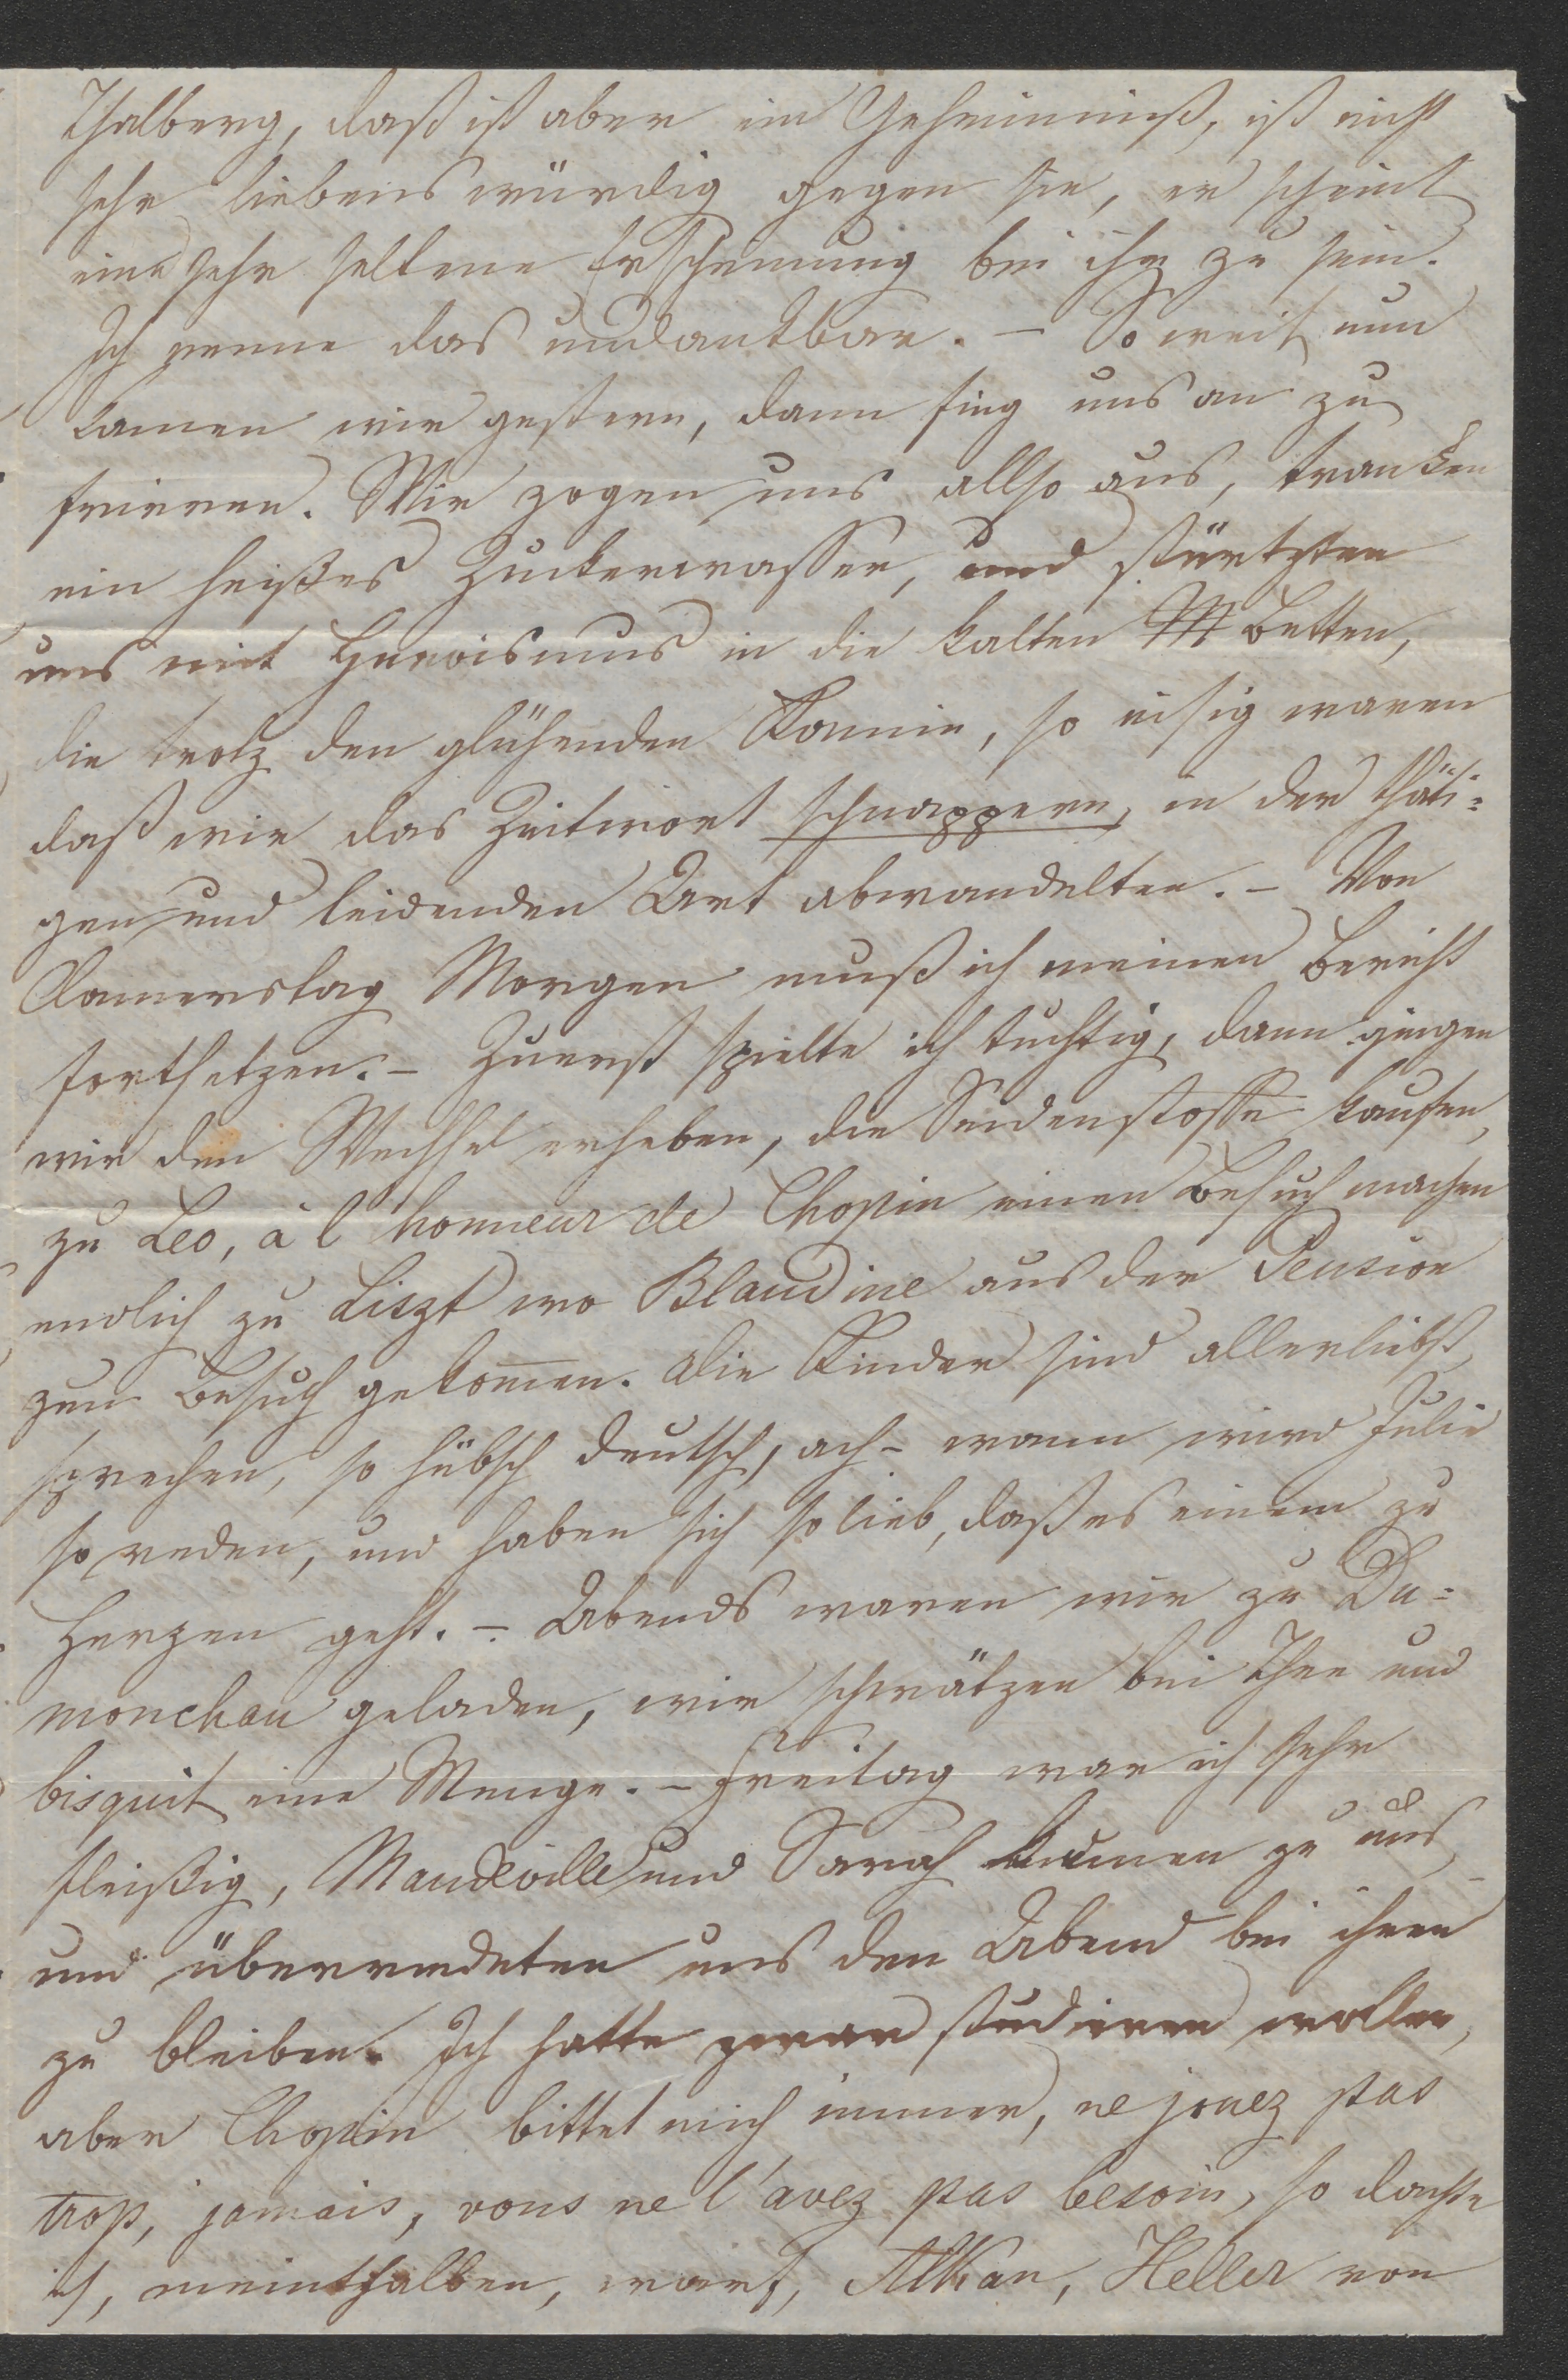 Thalberg, daß ist aber ein Geheimniß, ist nicht
sehr liebenswürdig gegen sie, er scheint
eine sehr seltene Erscheinung bei ihr zu sein.
Ich nenne das undankbar. – So weit nun
kamen wir gestern, dann fing uns an zu
frieren. Wir zogen uns allso aus, tranken
ein heißes Zuckerwasser, und stürtzten
uns mit Heroismus in die kalten Betten,
die trotz den glühenden Kamin, so eisig waren
daß wir das Zeitwort schnappern, in der thäti=
gen und leidenden Art abwandelten. – Von
Donnerstag Morgen muß ich meinen Bericht
forthsetzen. – Zuerst spielte ich tüchtig, dann gingen
wir den Wechsel erheben, die Seidenstoffe kaufen,
zu Leo, à l'honneur de Chopin einen Besuch machen
endlich zu Liszt wo Blandine aus der Pension
zum Besuch gekom̅en. Die Kinder sind allerliebst,
sprechen, so hübsch deutsch, ach – wann wird Julie
so reden, und haben sich so lieb, daß es einem zu
Herzen geht. – Abends waren wir zu Du=
monchau geladen, wir schwätzen bei Thee und
bisquit eine Menge. – Freitag war ich sehr
fleißig, Mandeville und Sarah kamen zu uns,
und überredeten uns den Abend bei ihnen
zu bleiben. Ich hatte zwar studieren wollen,
aber Chopin bittet mich immer, ne jouez pas
trop, jamais, vous ne l'avez pas besoin, so dachte
ich, meinthalben, warf, Alkan, Heller von